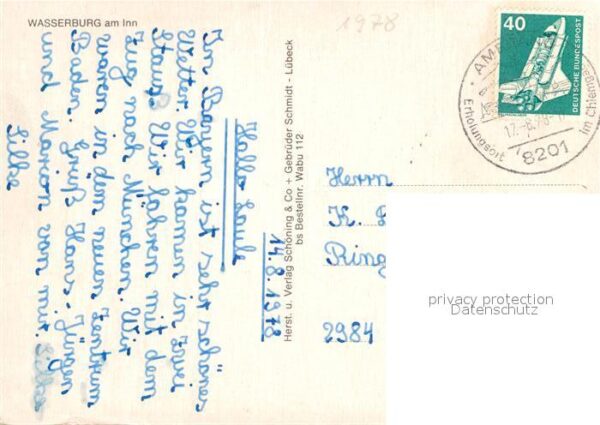 WASSERBURG am Inn
1978
40
DEUTSCHE BUNDESPOST
Erholungsort
im Chiemgau
17.-8.78
8201
14.8.1978
Hallo
In Bayern ist sehr schönes
Wetter. Wir kamen in zwei
Staus. Wir fahren mit dem
Zug nach München. Wir
waren in dem neuen Zentrum
Baden. Grüß Hans-Jürgen
und Marion von mir. Silke
Silke
Herst. u. Verlag Schöning & Co + Gebrüder Schmidt - Lübeck
bs Bestellnr. Wabu 112
Herrn
K.
Ring
2984
privacy protection
Datenschutz